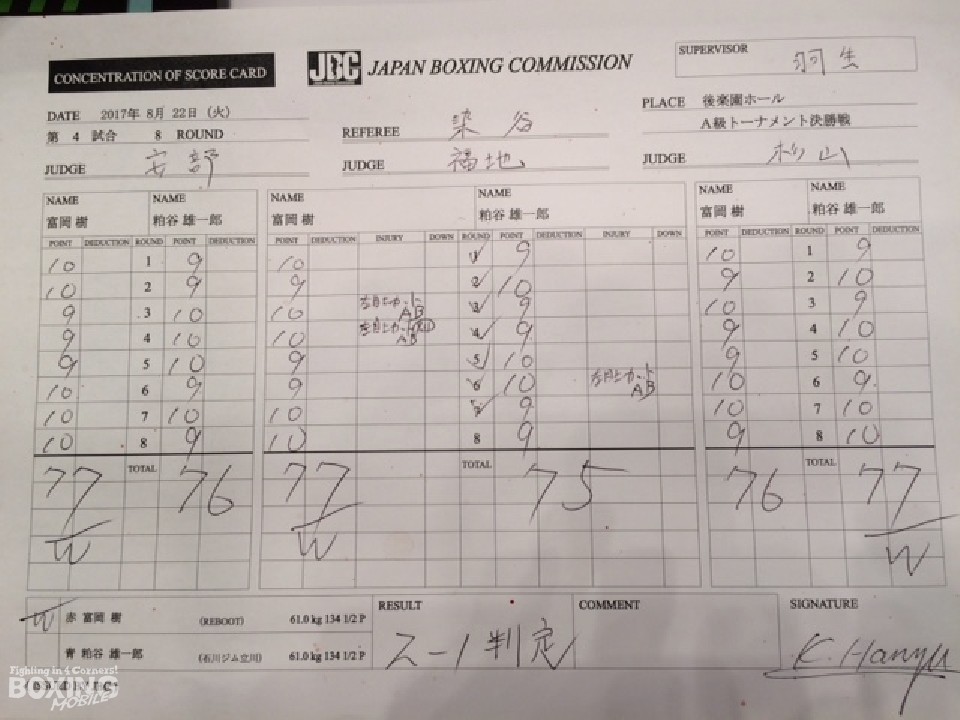 CONCENTRATION OF SCORE CARD
JBC JAPAN BOXING COMMISSION
SUPERVISOR 羽生
DATE 2017年 8月 22日 (火)
PLACE 後楽園ホール
第 4 試合 8 ROUND
REFEREE 染谷
A級トーナメント決勝戦
JUDGE 安部
JUDGE 福地
JUDGE 杉山
NAME NAME NAME NAME NAME NAME
富岡 樹 粕谷 雄一郎 富岡 樹 粕谷 雄一郎 富岡 樹 粕谷 雄一郎
POINT DEDUCTION ROUND POINT DEDUCTION POINT DEDUCTION INJURY DOWN ROUND POINT DEDUCTION INJURY DOWN POINT DEDUCTION ROUND POINT DEDUCTION
10 1 9 10 1 9 10 1 9
10 2 9 9 2 10 9 2 10
9 3 10 10 左目上カット AB 3 9 10 3 9
9 4 10 10 左目上カット AB 4 9 9 4 10
9 5 10 9 5 10 9 5 10
10 6 9 9 6 10 左目上カット AB 10 6 9
10 7 10 10 9 10 7 10
10 8 9 10 8 9 9 8 10
77 TOTAL 76 77 TOTAL 75 76 TOTAL 77
W W W
RESULT COMMENT SIGNATURE
W 赤 富岡 樹 (REBOOT) 61.0 kg 134 1/2 P
2-1 判定
K. Hanyu
青 粕谷 雄一郎 (石川ジム立川) 61.0 kg 134 1/2 P
Fighting in 4 Corners!
BOXING
MOBILE